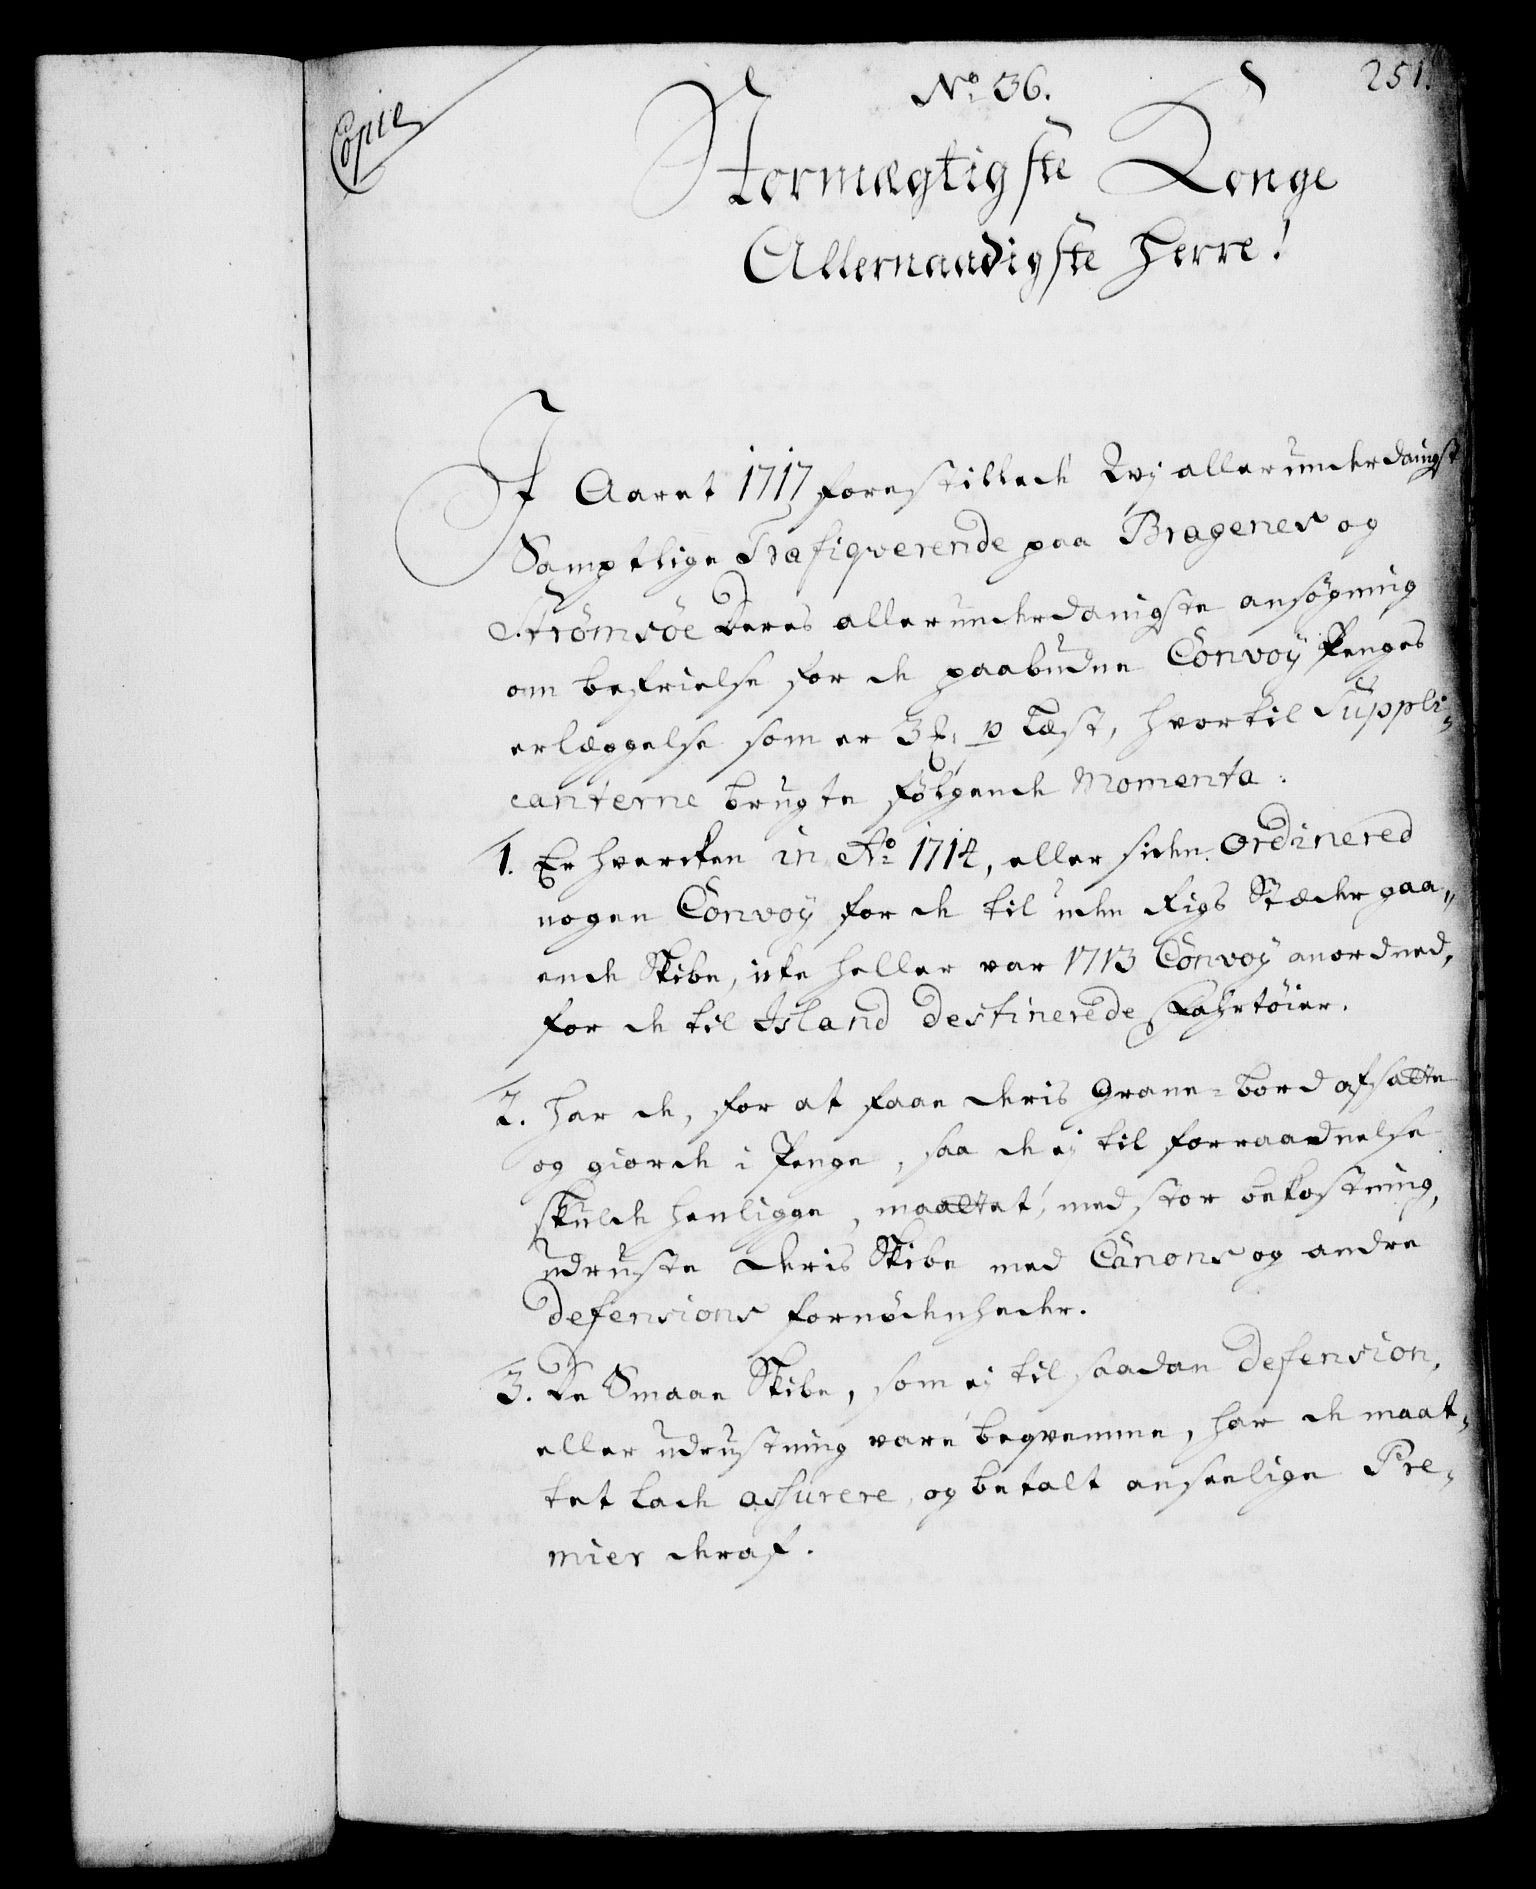 251.
Copie
No. 36.
Stormægtigste Konge
Allernaadigste Herre!
I Aaret 1717 forestillede Wij allerunderdanigst
Samptlige Trafiqverende paa Bragenes og
Strömsöe deres allerunderdanigste ansögning
om befrielse for de paabudne Convoÿ Penges
erlæggelse som er 3 p Læst, hvortil Suppli-
canterne brugte fölgende Momenta.
1. Er hvercken in Ao. 1714, eller siden ordinered
nogen Convoÿ for de til uden Rigs Stæder gaa-
ende Skibe, icke heller var 1713 Convoÿ anordned,
for de til Island destinerede Fahrtöier.
2. har de, for at faae deris Grane-bord afsætte
og giorde i Penge, saa de ej til forraadnelse
skulde henligge, maattet, med stor bekostning,
udruste deris Skibe med Canons og andre
defensions fornödenheder.
3. De Smaae Skibe, som ej til saadan defension,
eller udrustning vare beqvemme, har de maat-
tet lade assurere, og betalt anseelige Pre-
mier deraf.